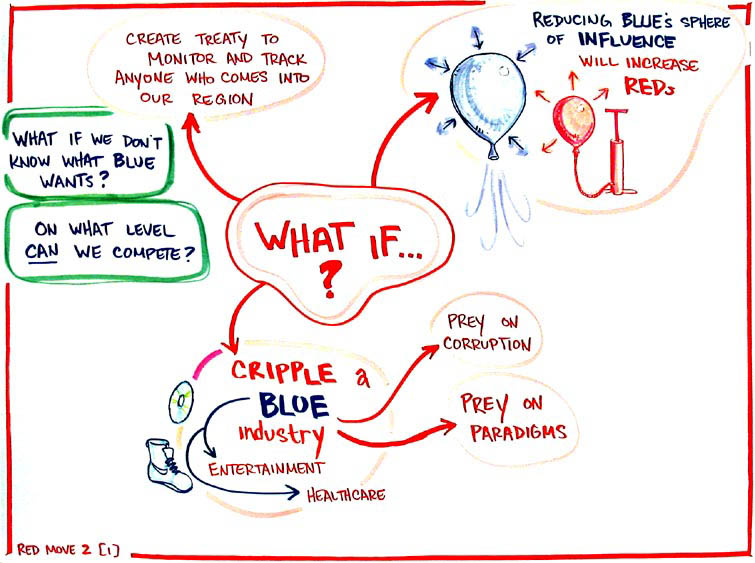 CREATE TREATY TO
MONITOR AND TRACK
ANYONE WHO COMES INTO
OUR REGION
REDUCING BLUE'S SPHERE
OF INFLUENCE
WILL INCREASE
REDs
WHAT IF WE DON'T
KNOW WHAT BLUE
WANTS?
ON WHAT LEVEL
CAN WE COMPETE?
WHAT IF...
?
CRIPPLE a
BLUE
industry
ENTERTAINMENT
HEALTHCARE
PREY ON
CORRUPTION
PREY ON
PARADIGMS
RED MOVE 2 [1]